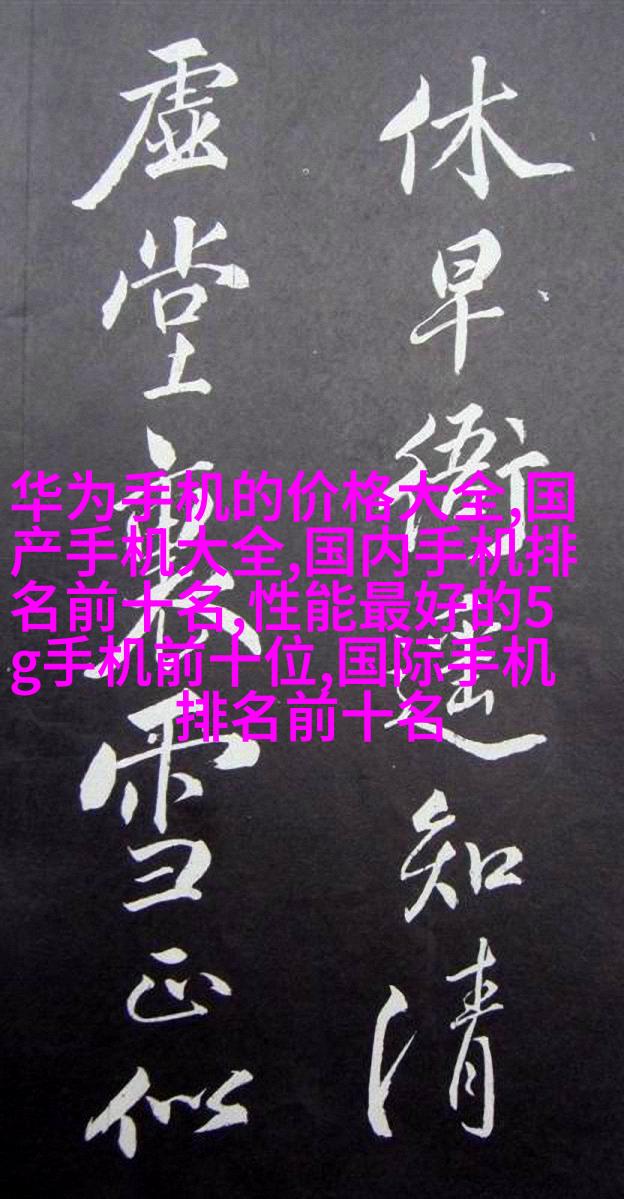 休早衙遥知清
虚堂裏雪正似
华为手机的价格大全,国
产手机大全,国内手机排
名前十名,性能最好的5
g手机前十位,国际手机
排名前十名